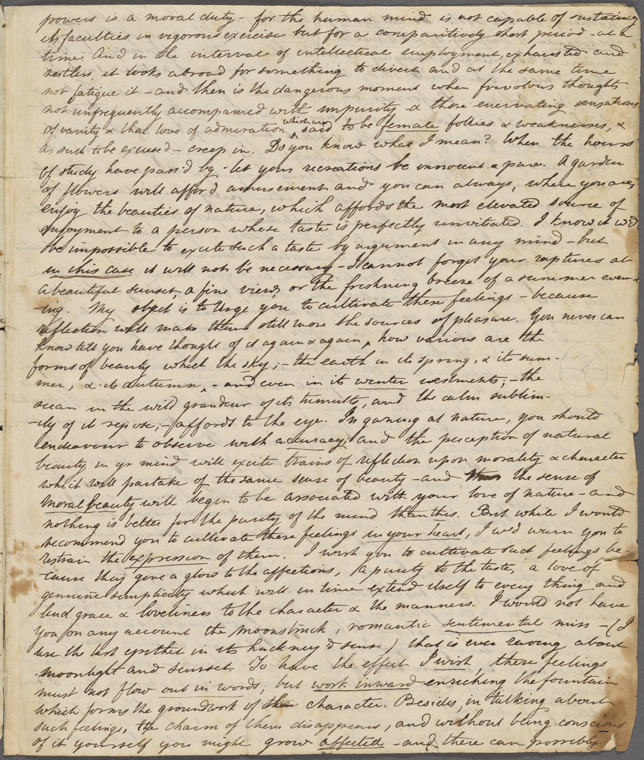 powers is a moral duty - for the human mind is not capable of sustaining
its faculties in vigorous exercise but for a comparitively short period - at a
time. And in the interval of intellectual employment, exhausted and
restless, it looks abroad for something to divert and at the same time
not fatigue it - and then is the dangerous moment when frivolous thoughts
not unfrequently accompanied with impurity & those enervating sensations
of vanity & that love of admiration which are said to be female follies & weaknesses, &
as such to be excused - creep in. Do you know what I mean? When the hours
of study have pass'd by - let your recreations be innocent & pure. A garden
of flowers will afford amusement and you can always, where you are,
enjoy the beauties of nature, which affords the most elevated source of
enjoyment to a person whose taste is perfectly unvitiated. I know it wd
be impossible to excite such a taste by argument in any mind - but
in this case it will not be necessary - I cannot forget your raptures at
a beautiful sunset, a fine view, or the freshning breeze of a summer even-
ing. My object is to urge you to cultivate these feelings - because
reflection will make them still more the sources of pleasure. You never can
know till you have thought of it again & again, how various are the
forms of beauty which the sky; - the earth in its spring, & its sum-
mer, & its autumn, - and even in its winter vestments; - the
ocean in the wild grandeur of its tumults, and the calm sublim-
ity of its repose, - affords to the eye. In gazing at nature, you should
endeavour to observe with accuracy; and the perception of natural
beauty in yr mind will excite trains of reflection upon morality & character
which will partake of the same sense of beauty - and the sense of
moral beauty will begin to be associated with your love of nature - and
nothing is better for the purity of the mind than this. But while I would
recommend you to cultivate these feelings in your heart, I wd warn you to
restrain the expression of them. I wish you to cultivate such feelings be-
cause they give a glow to the affections, a purity to the taste, a love of
genuine simplicity which will in time extend itself to every thing and
lend grace & loveliness to the character & the manners. I would not have
you on any account the moonstruck, romantic sentimental miss - (I
use the last epithet in its hackney'd sense) that is ever raving about
moonlight and sunset. To have the effect I wish, these feelings
must not flow out in words, but work inward enriching the fountain
which forms the groundwork of the character. Besides, in talking about
such feelings, the charm of them disappears, and without being conscious
of it yourself you might grow affected - and there can possibly